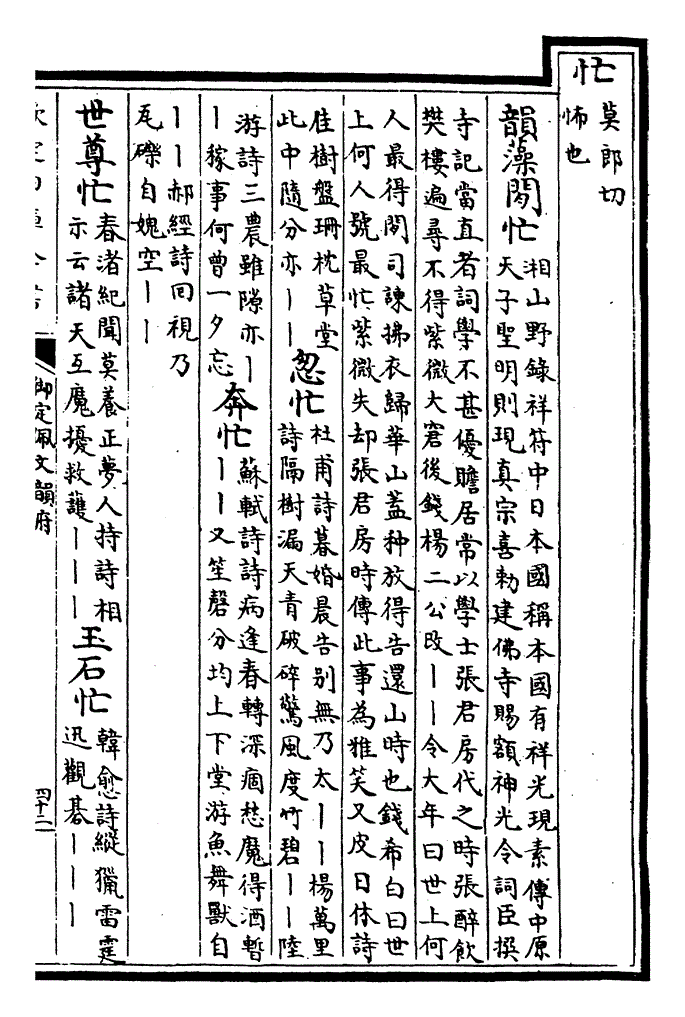 忙
莫郎切
怖也
韻藻
閒忙
湘山野錄祥符中日本國稱本國有祥光現素傳中原
天子聖明則現真宗喜勅建佛寺賜額神光令詞臣撰
寺記當直者詞學不甚優贍居常以學士張君房代之時張醉飲
樊樓遍尋不得紫微大窘後錢楊二公改丨丨令大年曰世上何
人最得閒司諫拂衣歸華山蓋种放得告還山時也錢希白曰世
上何人號最忙紫微失却張君房時傳此事為雅笑又皮日休詩
佳樹盤珊枕草堂
此中隨分亦丨丨
忽忙
杜甫詩暮婚晨告別無乃太丨丨楊萬里
詩隔樹漏天青破碎驚風度竹碧丨丨陸
游詩三農雖隙亦丨
丨稼事何曾一夕忘
奔忙
蘇軾詩詩病逢春轉深痼愁魔得酒暫
丨丨又笙磬分均上下堂游魚舞獸自
丨丨郝經詩回視乃
瓦礫自媿空丨丨
世尊忙
春渚紀聞莫養正夢人持詩相
示云諸天互魔擾救護丨丨丨
玉石忙
韓愈詩縱獵雷霆
迅觀碁丨丨丨
欽定四庫全書
御定佩文韻府
四十二